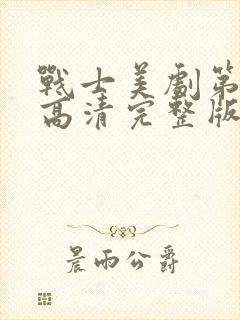 戰士美劇第
高清完整版
晨雨公爵